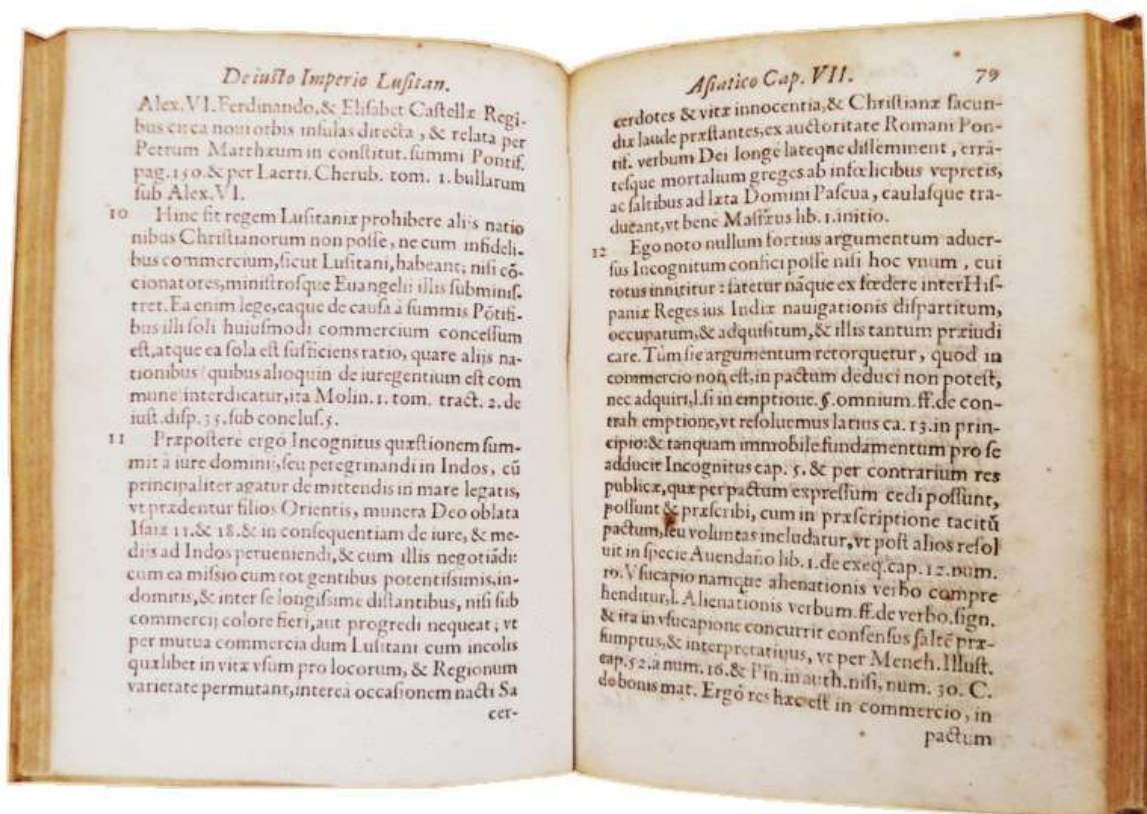 De iusto Imperio Lusitan.
Alex. VI. Ferdinando, & Elisabet Castellæ Regi-
bus circa noui orbis insulas directa, & relata per
Petrum Matthæum in constitut. summi Pontif.
pag. 150. & per Laerti. Cherub. tom. 1. bullarum
sub Alex. VI.
10 Hinc fit regem Lusitaniæ prohibere alijs natio
nibus Christianorum non posse, ne cum infideli-
bus commercium, sicut Lusitani, habeant; nisi cõ-
cionatores, ministrosque Euangelii illis subminis-
tret. Ea enim lege, eaque de causa à summis Põtifi-
bus illi soli huiusmodi commercium concessum
est, atque ea sola est sufficiens ratio, quare alijs na-
tionibus (quibus alioquin de iure gentium est com
mune interdicatur, ita Molin. 1. tom. tract. 2. de
iust. disp. 35. sub conclus. 5.
11 Præpostere ergò Incognitus quæstionem sum-
mit à iure dominij, seu peregrinandi in Indos, cũ
principaliter agatur de mittendis in mare legatis,
vt prædentur filios Orientis, munera Deo oblata
Isaiæ 11. & 18. & in consequentiam de iure, & me-
diis ad Indos perueniendi, & cum illis negotiãdi:
cum ea missio cum tot gentibus potentissimis, in-
domitis, & inter se longissime distantibus, nisi sub
commercij colore fieri, aut progredi nequeat; vt
per mutua commercia dum Lusitani cum incolis
quælibet in vitæ vsum pro locorum, & Regionum
varietate permutant, interea occasionem nacti Sa
cer-
Asiatico Cap. VII. 79
cerdotes & vitæ innocentia, & Christianæ facun-
diæ laude præstantes, ex auctoritate Romani Pon-
tif. verbum Dei longè lateqne disseminent, errã-
tesque mortalium greges ab infœlicibus vepretis,
ac saltibus ad læta Domini Pascua, caulasque tra-
ducant, vt bene Maffæus lib. 1. initio.
12 Ego noto nullum fortius argumentum aduer-
sus Incognitum confici posse nisi hoc vnum, cui
totus innititur: fatetur nãque ex fœdere inter His-
paniæ Reges ius Indiæ nauigationis dispartitum,
occupatum, & adquisitum, & illis tantum præiudi
care. Tũm sic argumentum retorquetur, quod in
commercio non est, in pactum deduci non potest,
nec adquiri, l. si in emptione. §. omnium. ff. de con-
trah emptione, vt resoluemus latius ca. 13. in prin-
cipio: & tanquam immobile fundamentum pro se
adducit Incognitus cap. 5. & per contrarium res
publicæ, quæ per pactum expressum cedi possunt,
possunt & præscribi, cum in præscriptione tacitũ
pactum, seu voluntas includatur, vt post alios resol
uit in specie Auendaño lib. 1. de exeq. cap. 12. num.
10. Vsucapio namque alienationis verbo compre
henditur, l. Alienationis verbum. ff. de verbo. sign.
& ita in vsucapione concurrit consensus saltẽ præ-
sumptus, & interpretatiuus, vt per Mench. Illust.
cap. 52. à num. 16. & Pin. in auth. nisi, num. 30. C.
do bonis mat. Ergò res hæc est in commercio, in
pactum